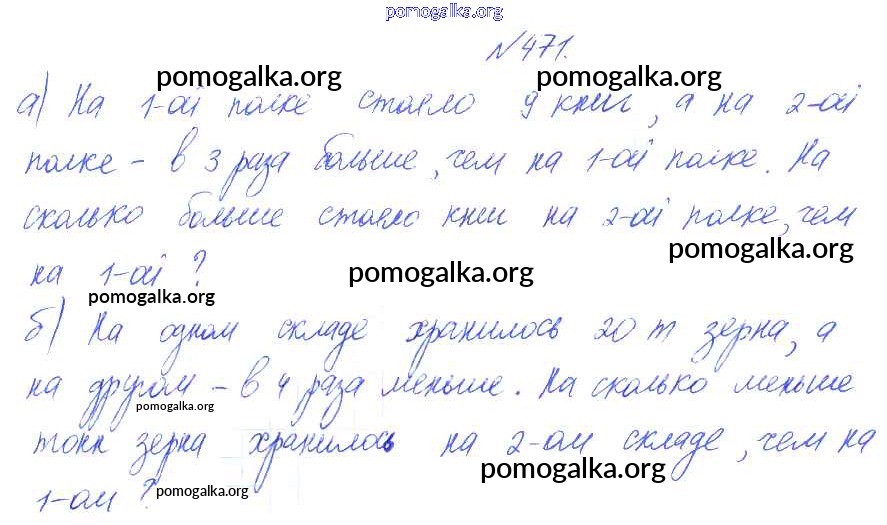 pomogalka.org
№471.
pomogalka.org pomogalka.org
а) На 1-ой полке стояло 9 книг, а на 2-ой
полке - в 3 раза больше, чем на 1-ой полке. На
сколько больше стояло книг на 2-ой полке, чем
pomogalka.org
на 1-ой?
pomogalka.org
pomogalka.org
б) На одном складе хранилось 20 т зерна, а
на другом - в 4 раза меньше. На сколько меньше
pomogalka.org
тонн зерна хранилось на 2-ом складе, чем на
pomogalka.org
1-ом?
pomogalka.org